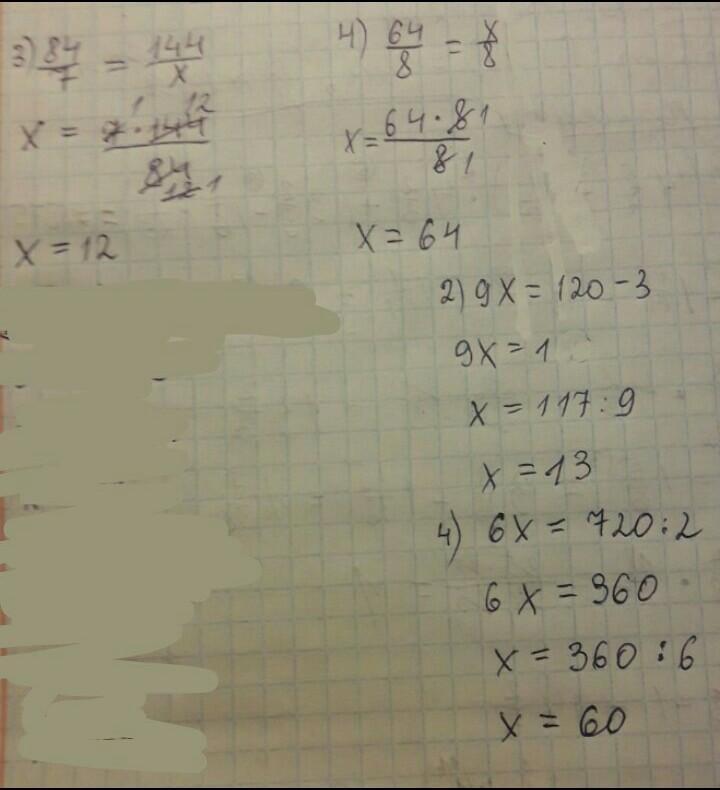 3) 84/7 = 144/x
x = 7·144/84
1 12
12 1
x = 12
4) 64/8 = x/8
x = 64·8/8
1
1
x = 64
2) 9x = 120-3
9x = 1
x = 117:9
x = 13
4) 6x = 720:2
6x = 360
x = 360:6
x = 60